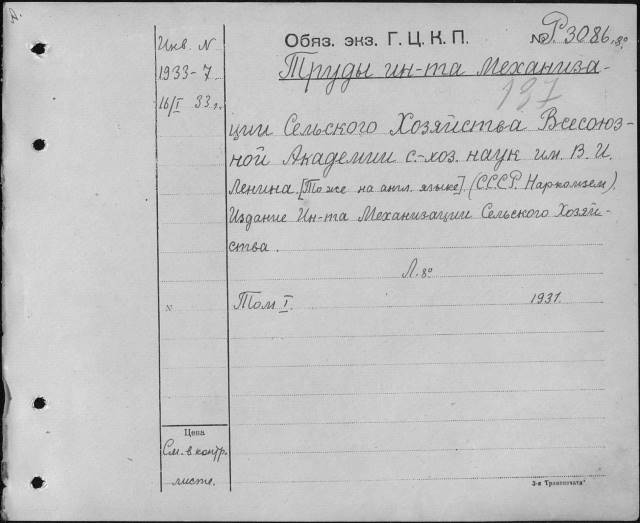 Инв. N
1933-7
16/I 33 г.
Обяз. экз. Г. Ц. К. П.
№ Р3086 8°
Труды ин-та Механиза-
137
ции Сельского Хозяйства Всесоюз-
ной Академии с-хоз. наук им. В. И.
Ленина. [То же на англ. языке]. (СССР. Наркомзем).
Издание Ин-та Механизации Сельского Хозяй-
ства.
Л. 8°
Том I. 1931.
Цена
См. в контр.
листе.
3-я Транспечать